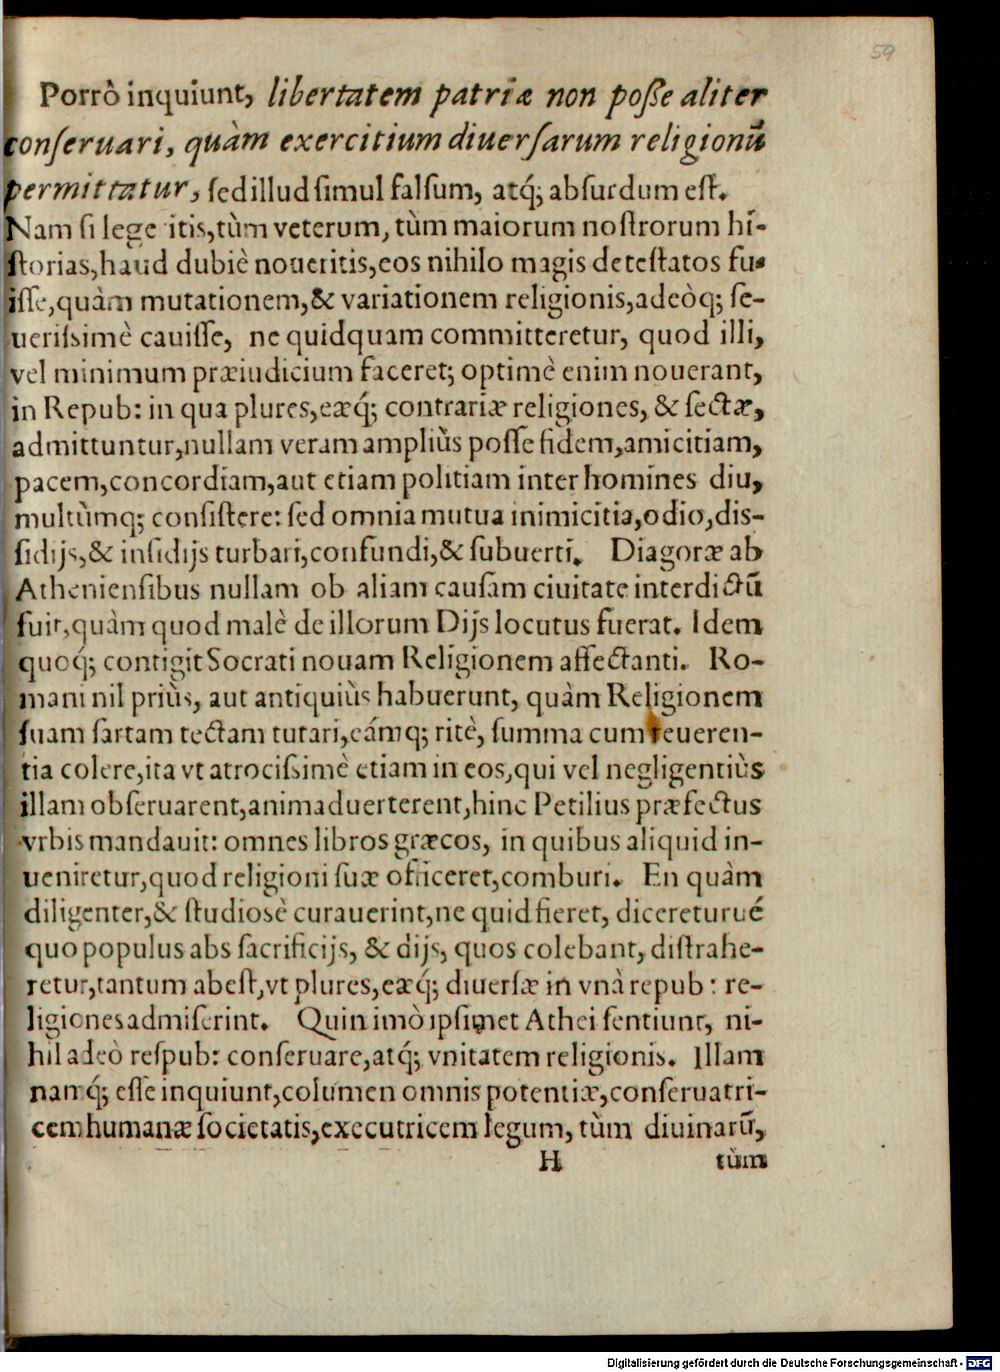 59
Porrò inquiunt, libertatem patriæ non poſſe aliter
conſeruari, quàm exercitium diuerſarum religionũ
permittatur, ſed illud ſimul falſum, atq́; abſurdum eſt.
Nam ſi legeritis, tùm veterum, tùm maiorum noſtrorum hi-
ſtorias, haud dubiè noueritis, eos nihilo magis deteſtatos fu-
iſſe, quàm mutationem, & variationem religionis, adeòq; ſe-
ueriſsimè cauiſſe, ne quidquam committeretur, quod illi,
vel minimum præiudicium faceret; optimè enim nouerant,
in Repub: in qua plures, eæq́; contrariæ religiones, & ſectæ,
admittuntur, nullam veram ampliùs poſſe fidem, amicitiam,
pacem, concordiam, aut etiam politiam inter homines diu,
multùmq; conſiſtere: ſed omnia mutua inimicitia, odio, diſ-
ſidijs, & inſidijs turbari, confundi, & ſubuerti. Diagoræ ab
Athenienſibus nullam ob aliam cauſam ciuitate interdictũ
fuit, quàm quod malè de illorum Dijs locutus fuerat. Idem
quoq́; contigit Socrati nouam Religionem affectanti. Ro-
mani nil priùs, aut antiquiùs habuerunt, quàm Religionem
ſuam ſartam tectam tutari, eámq; ritè, ſumma cum reueren-
tia colere, ita vt atrociſsimè etiam in eos, qui vel negligentiùs
illam obſeruarent, animaduerterent, hinc Petilius præfectus
vrbis mandauit: omnes libros græcos, in quibus aliquid in-
ueniretur, quod religioni ſuæ officeret, comburi. En quàm
diligenter, & ſtudiosè curauerint, ne quid fieret, dicereturué
quo populus abs ſacrificijs, & dijs, quos colebant, diſtrahe-
retur, tantum abeſt, vt plures, eæq́; diuerſæ in vnâ repub: re-
ligiones admiſerint. Quin imò ipſimet Athei ſentiunt, ni-
hil adeò reſpub: conſeruare, atq́; vnitatem religionis. Illam
namq́; eſſe inquiunt, columen omnis potentiæ, conſeruatri-
cem humanæ ſocietatis, executricem legum, tùm diuinarũ,
H tùm
Digitalisierung gefördert durch die Deutsche Forschungsgemeinschaft - DFG